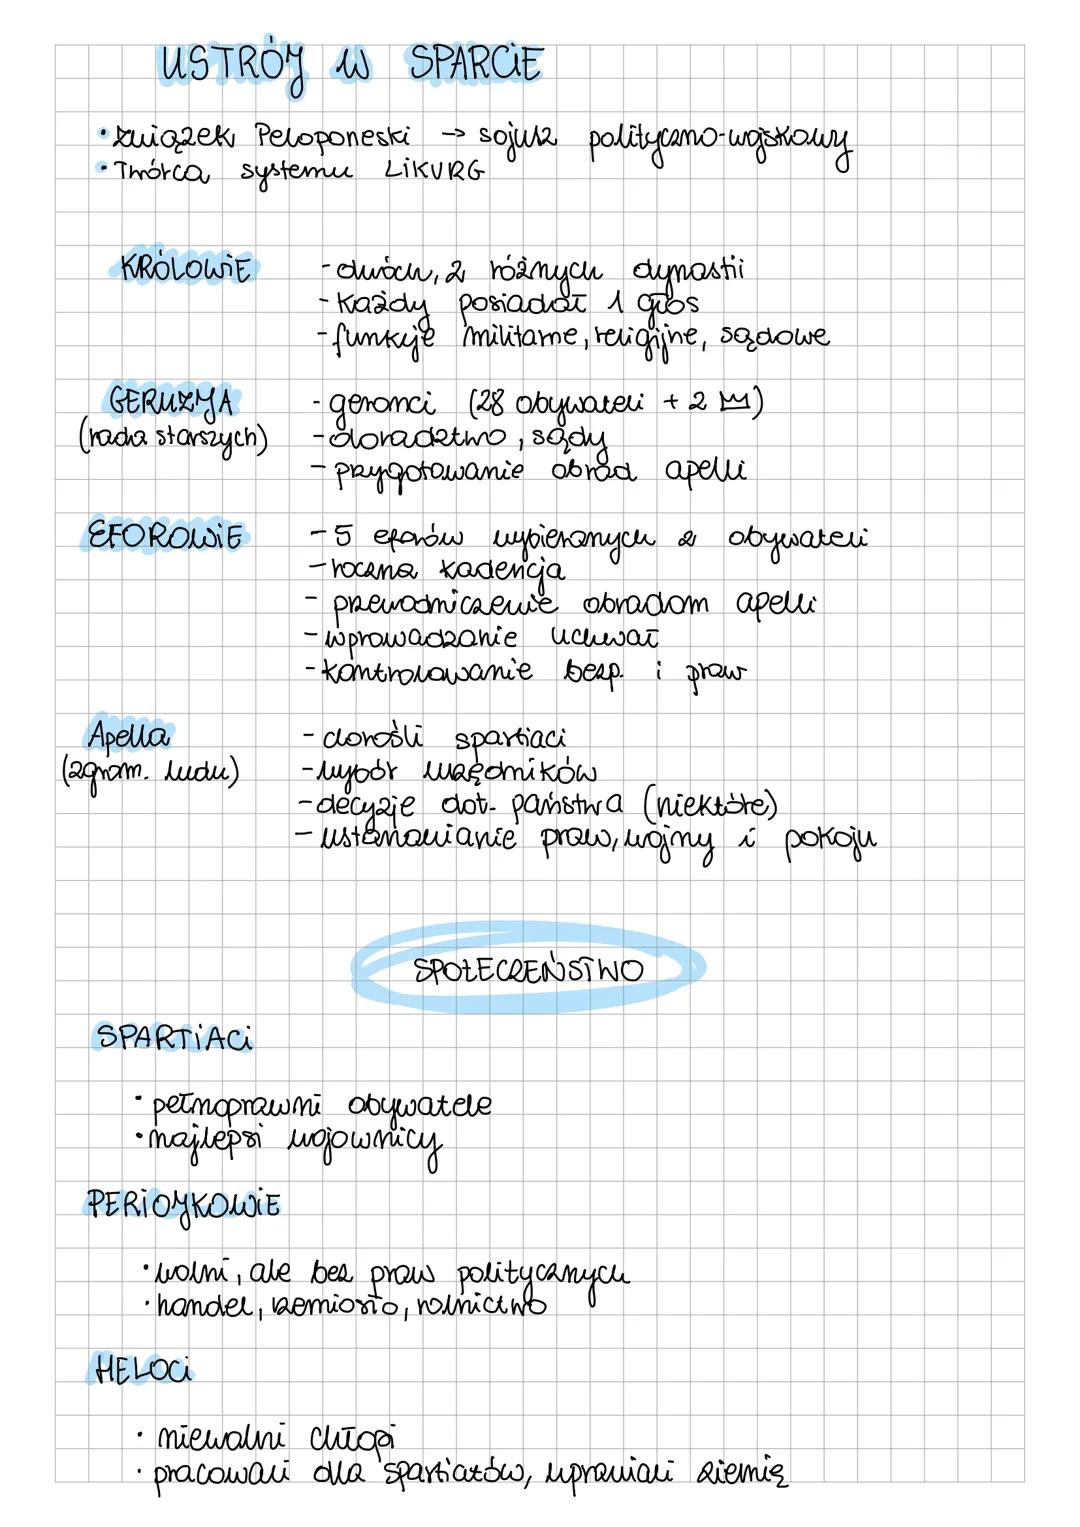 USTRÓJ W SPARCIE
• Związek Peloponeski → sojusz polityczno-wojskowy
• Twórca systemu LIKURG
KRÓLOWIE
- dwóch, z różnych dynastii
- każdy posiadał 1 głos
- funkcje militarne, religijne, sądowe
GERUZJA
(rada starszych)
- geronci (28 obywateli + 2 👑)
- doradztwo, sądy
- przygotowanie obrad apelli
EFOROWIE
- 5 eforów wybieranych z obywateli
- roczna kadencja
- przewodniczenie obradom apelli
- wprowadzanie uchwał
- kontrolowanie bezp. i praw
Apella
(zgrom. ludu)
- dorośli spartiaci
- wybór urzędników
- decyzje dot. państwa (niektóre)
- ustanawianie praw, wojny i pokoju
SPOŁECZEŃSTWO
SPARTIACI
• pełnoprawni obywatele
• najlepsi wojownicy
PERIOJKOWIE
• wolni, ale bez praw politycznych
• handel, rzemiosło, rolnictwo
HELOCI
• niewolni chłopi
• pracowali dla spartiatów, uprawiali ziemię